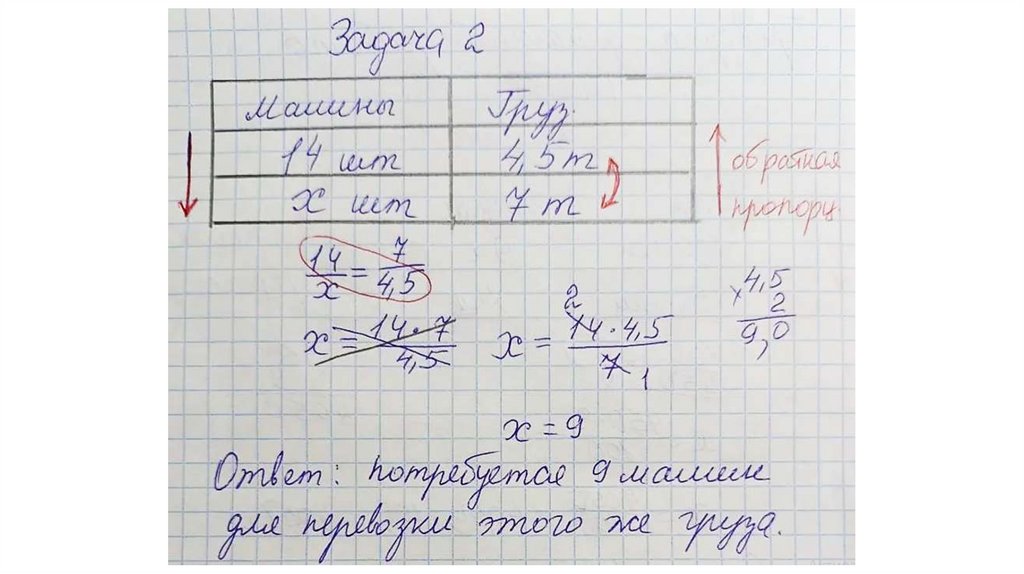 Задача 2
Машины Груз
14 шт 4,5 т
х шт 7 т
обратная
пропорц.
14/х = 7/4,5
х = 14 · 7/4,5
х = 14 · 4,5/7
2
1
4,5
× 2
9,0
х = 9
Ответ: потребуется 9 машин
для перевозки этого же груза.